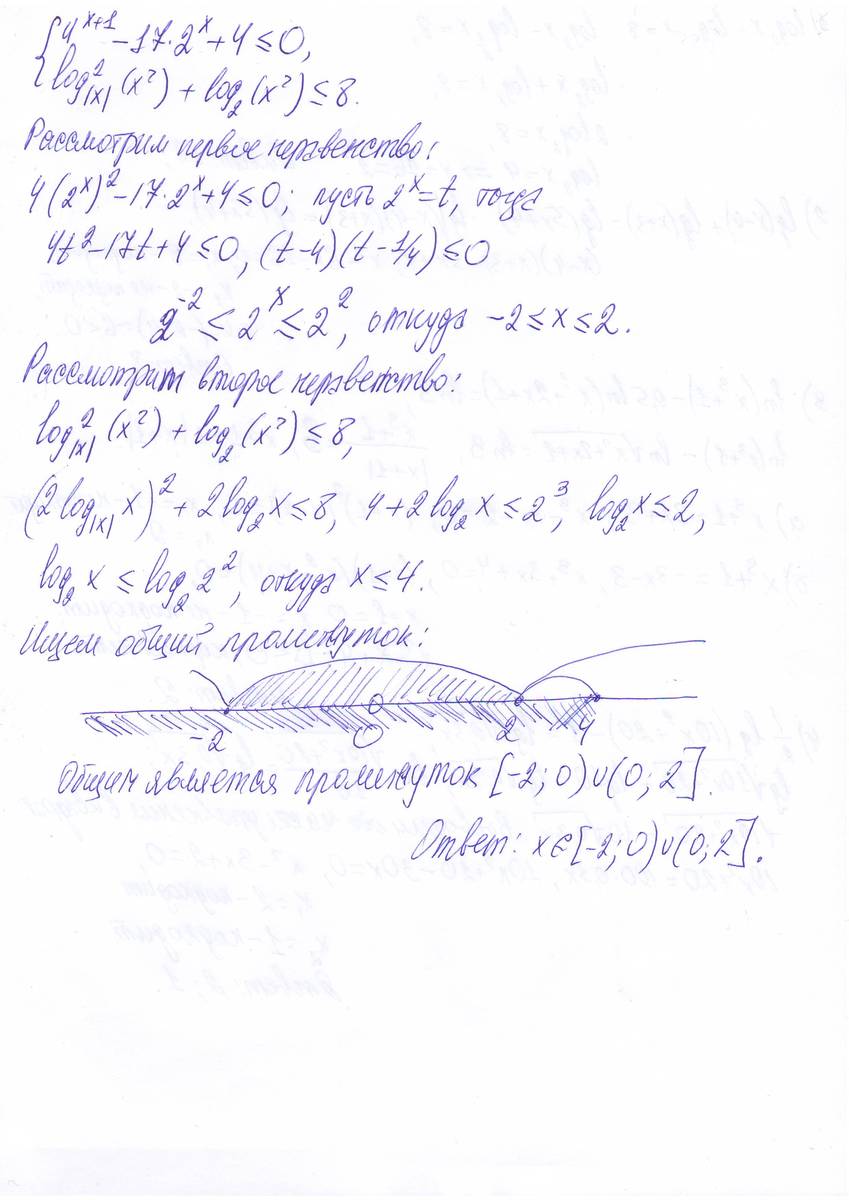 {4^(x+1) - 17·2^x + 4 ≤ 0,
{log²_|x| (x²) + log₂(x²) ≤ 8.
Рассмотрим первое неравенство:
4(2^x)² - 17·2^x + 4 ≤ 0; пусть 2^x = t, тогда
4t² - 17t + 4 ≤ 0, (t - 4)(t - 1/4) ≤ 0
2^(-2) ≤ 2^x ≤ 2², откуда -2 ≤ x ≤ 2.
Рассмотрит второе неравенство:
log²_|x| (x²) + log₂(x²) ≤ 8,
(2log_|x| x)² + 2log₂x ≤ 8, 4 + 2log₂x ≤ 2³, log₂x ≤ 2,
log₂x ≤ log₂2², откуда x ≤ 4.
Ищем общий промежуток:
-2 0 2 4
Общим является промежуток [-2; 0)∪(0; 2].
Ответ: x∈[-2; 0)∪(0; 2].